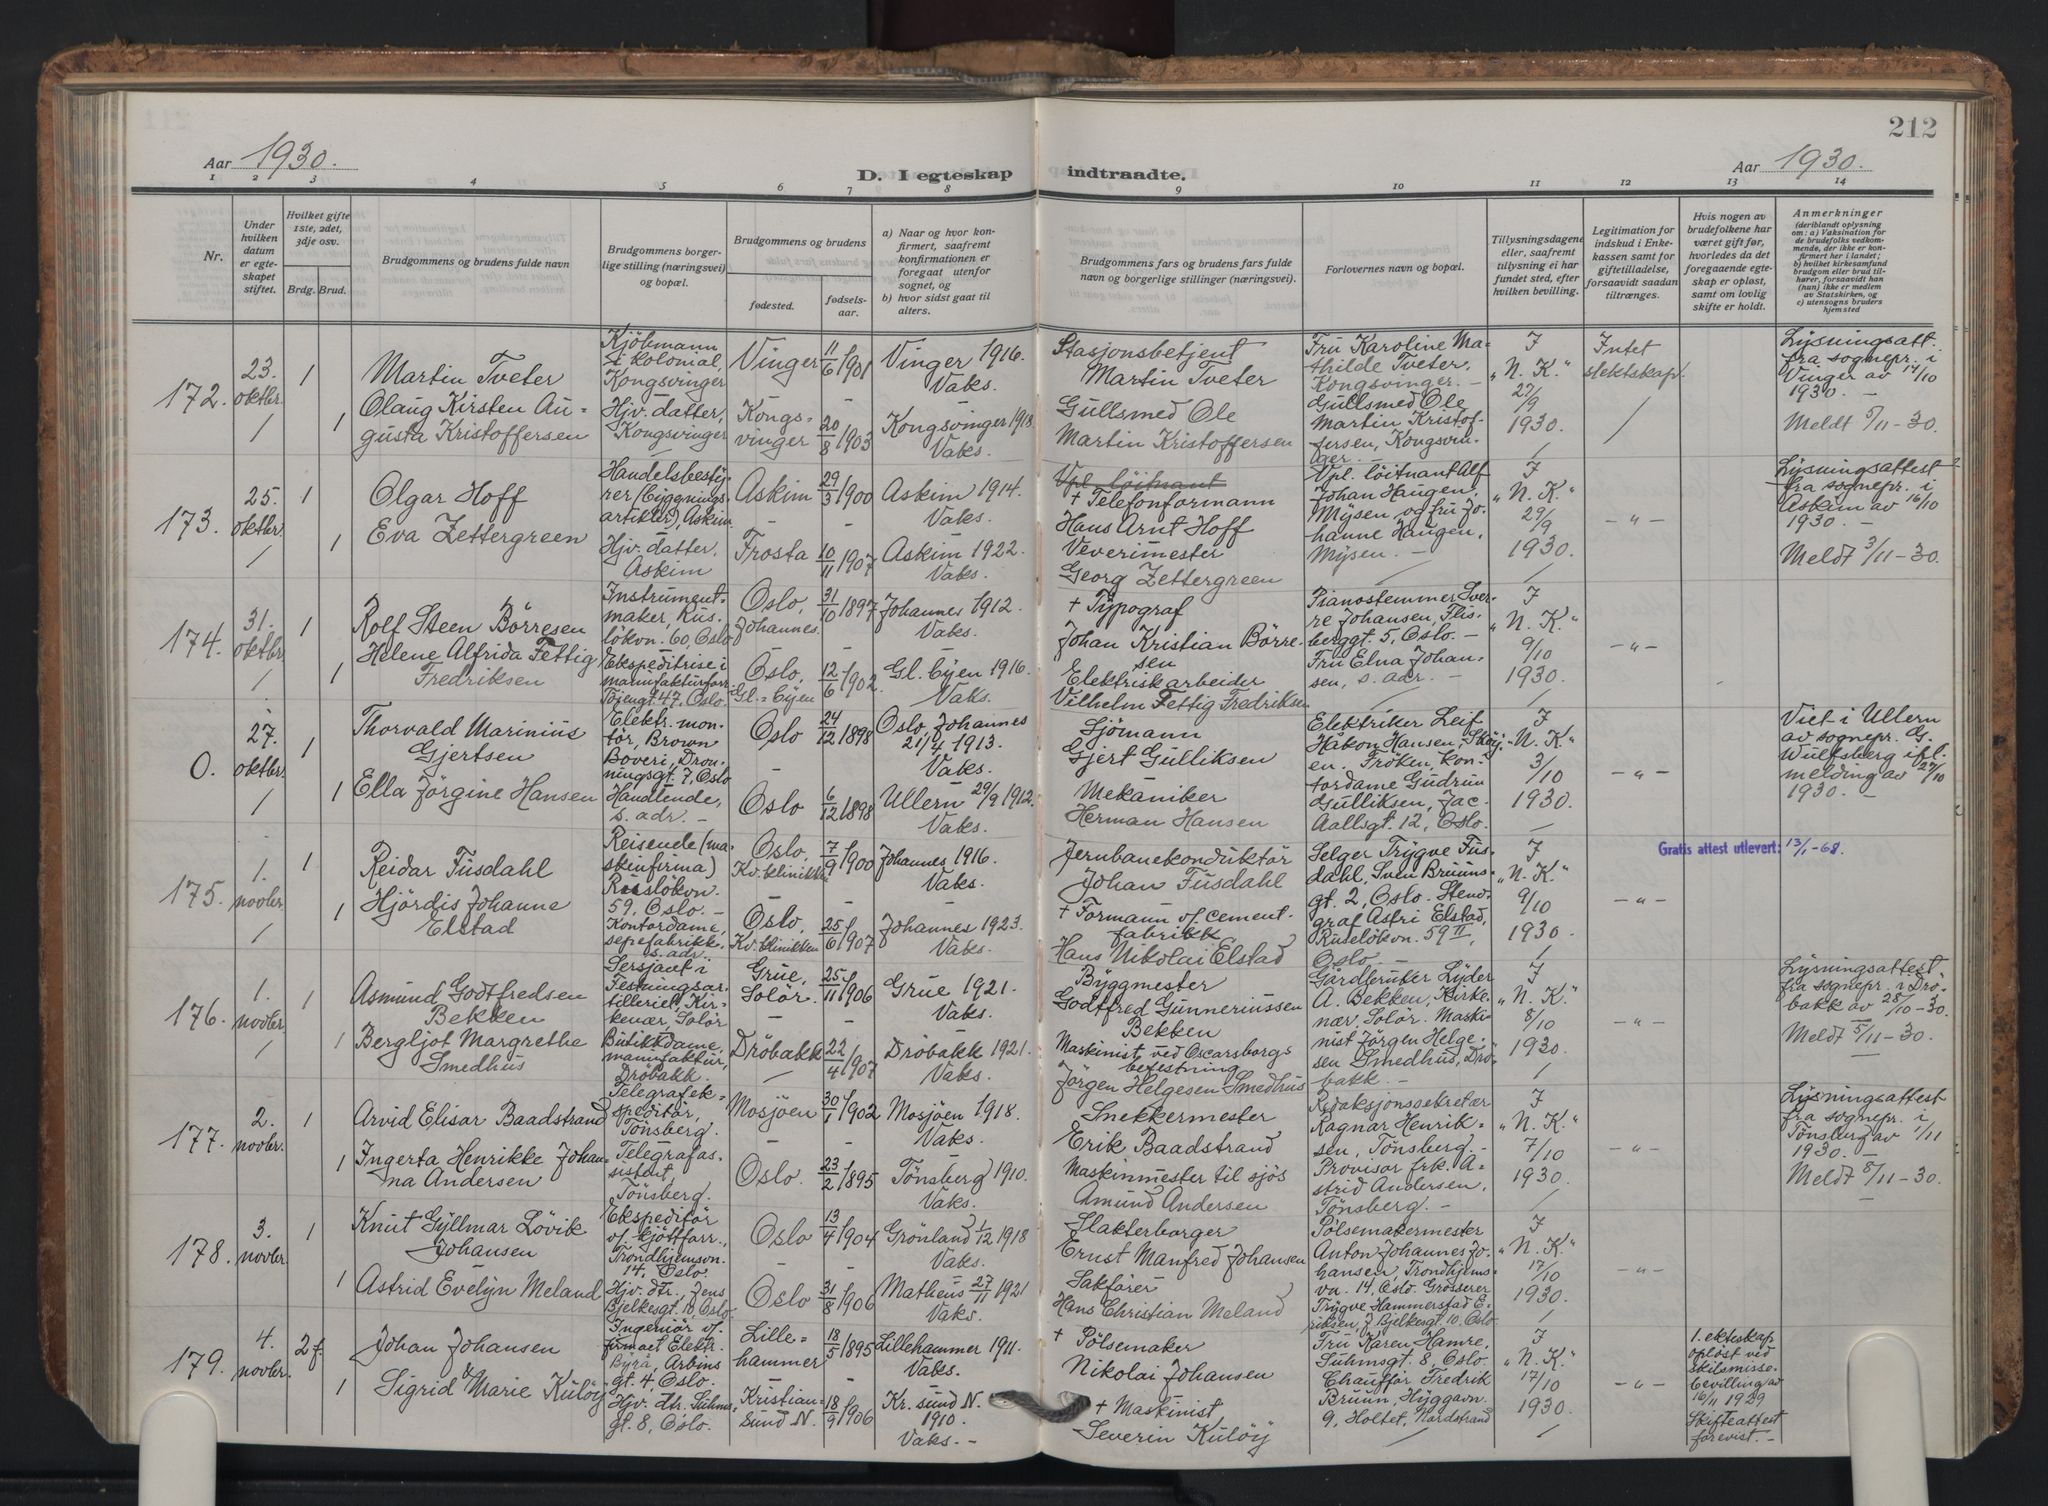 212
Aar 1930.
D. I egteskap indtraadte.
Aar 1930.
1 2 3 4 5 6 7 8 9 10 11 12 13 14
Nr.
Under hvilken datum er egte- skapet stiftet.
Hvilket gifte 1ste, 2det, 3dje osv.
Brdg. Brud.
Brudgommens og brudens fulde navn
Brudgommens borger- lige stilling (næringsvei) og bopæl.
Brudgommens og brudens
fødested.
fødsels- aar.
a) Naar og hvor kon- firmert, saafremt konfirmationen er foregaat utenfor sognet, og
b) hvor sidst gaat til alters.
Brudgommens fars og brudens fars fulde navn og borgerlige stillinger (næringsvei).
Forlovernes navn og bopæl.
Tillysningsdagene eller, saafremt tillysning ei har fundet sted, efter hvilken bevilling.
Legitimation for indskud i Enke- kassen samt for giftetilladelse, forsaavidt saadan tiltrænges.
Hvis nogen av brudefolkene har været gift før, hvorledes da det foregaaende egte- skap er opløst, samt om lovlig skifte er holdt.
Anmerkninger (deriblandt oplysning om: a) Vaksination for de brudefolks vedkom- mende, der ikke er kon- firmert her i landet; b) hvilket kirkesamfund brudgom eller brud til- hører, forsaavidt han (hun) ikke er medlem av Statskirken, og c) utensogns bruders hjemsted
172. 23. oktbr. 1
Martin Tveter
Kjöbmann i kolonial, Kongsvinger
Vinger 11/6 1901
Vinger 1916. Vaks.
Stasjonsbetjent Martin Tveter
Fru Karoline Ma- thilde Tveter, Kongsvinger. –
I „N. K.“ 27/9 1930.
Intet slektskap.
Lysningsatt. fra sognepr. i Vinger av 14/10 1930. –
1 Olaug Kirsten Au- gusta Kristoffersen
Hjv. datter, Kongsvinger
Kongs- vinger 20/8 1903
Kongsvinger 1918. Vaks.
Gullsmed Ole Martin Kristoffersen
Gullsmed Ole Martin Kristof- fersen, Kongsvin- ger. –
Meldt 5/11-30.
173. 25. oktbr. 1
Olgar Hoff
Handelsbesty- rer (bygnings- artikler), Askim
Askim 29/3 1900
Askim 1914. Vaks.
Vpl. löitnant
+ Telefonformann Hans Arnt Hoff
Vpl. löitnant Alf Johan Haugen, Mysen og fru Jo- hanne Haugen, Mysen. –
I „N. K.“ 29/9 1930.
– „ –
Lysningsattest fra sognepr. i Askim av 16/10 1930. –
1 Eva Zettergreen
Hjv. datter, Askim
Frosta 10/11 1907
Askim 1922. Vaks.
Veverimester Georg Zettergreen
Meldt 3/11-30.
174. 31. oktbr. 1
Rolf Steen Börresen
Instrument- maker, Rus- lökvn. 60, Oslo
Oslo, Johannes. 31/10 1897
Johannes 1912. Vaks.
+ Typograf Johan Kristian Börre- sen
Pianostemmer Sver- re Johansen, Flis- berggt. 5, Oslo. –
Fru Elna Johan- sen, s. adr. –
I „N. K.“ 9/10 1930.
– „ –
1 Helene Alfrida Fettig Fredriksen
Ekspeditrise i manufakturforr. Töiengt 47, Oslo.
Oslo, Gl.= Byen 12/6 1902.
Gl. Byen 1916. Vaks.
Elektrisk arbeider Vilhelm Fettig Fredriksen
0. 27. oktbr. 1
Thorvald Marinius Gjertsen
Elektr. mon- tör, Brown Boveri, Dron- ningsgt. 7, Oslo
Oslo 24/12 1898
Oslo, Johannes 21/4 1913. Vaks.
Sjömann Gjert Gulliksen
Elektriker Leif Håkon Hansen, Sköy- en. Fröken, kon- tordame Gudrun Gulliksen, Jac. Aallsgt. 12, Oslo.
I „N. K.“ 3/10 1930.
– „ –
Viet i Ullern av sognepr. G. Wulfsberg ifl. melding av 27/10 1930. –
1 Ella Jörgine Hansen
Handlende, s. adr. –
Oslo 6/12 1898
Ullern 29/9 1912. Vaks.
Mekaniker Herman Hansen
175. 1. novbr. 1
Reidar Fusdahl
Reisende (ma- skinfirma) Ruslökvn. 59, Oslo. –
Oslo, Kv. klinikken 7/9 1900
Johannes 1916. Vaks.
Jernbanekonduktör Johan Fusdahl
Selger Trygve Fus- dahl, Sven Bruuns- gt. 2, Oslo. Stend- graf Astri Elstad, Ruselökvn. 59 II, Oslo. –
I „N. K.“ 9/10 1930.
– „ –
Gratis attest utlevert: 13/1-68.
1 Hjördis Johanne Elstad
Kontordame, sepefabrikk. s. adr.
Oslo, Kv. klinikken 25/6 1907
Johannes 1923. Vaks.
+ Formann v/ cement- fabrikk Hans Nikolai Elstad
176. 1. novbr. 1
Asmund Godtfredsen Bekken
Sersjant i Festningsar- tilleriet, Kir- kenær, Solör
Grue, Solör. 25/11 1906
Grue 1921. Vaks.
Byggmester Godtfred Gunneriussen Bekken
Gårdbruker Lyder A. Bekken, Kirke- nær, Solör. Maski- nist Jörgen Helge- sen Smedhus, Drö- bakk. –
I „N. K.“ 8/10 1930.
– „ –
Lysningsattest fra sognepr. i Drö- bakk av 28/10-30.
1 Bergljot Margrethe Smedhus
Butikkdame, manufaktur, Dröbakk.
Dröbakk 22/4 1907
Dröbakk 1921. Vaks.
Maskinist ved Oscarsborgs befestning Jörgen Helgesen Smedhus
Meldt 5/11-30.
177. 2. novbr. 1
Arvid Elisar Baadstrand
Telegrafek- speditör, Tönsberg.
Mosjöen 30/1 1902
Mosjöen 1918. Vaks.
Snekkermester Erik Baadstrand
Redaksjonssekretær Ragnar Henrik- sen, Tönsberg. – Provisor frk. A- strid Andersen, Tönsberg. –
I „N. K.“ 7/10 1930.
– „ –
Lysningsattest fra sognepr. i Tönsberg av 1/11 1930. –
1 Ingerta Henrikke Johan- na Andersen
Telegrafas- sistent, Tönsberg.
Oslo. 23/2 1895
Tönsberg 1910. Vaks.
Maskinmester til sjös Amund Andersen
Meldt 8/11-30.
178. 3. novbr. 1
Knut Gyllmar Lövik Johansen
Ekspeditör v/ kjöttforr., Trondhjemsvn. 14, Oslo.
Oslo 13/4 1904
Grönland 1/12 1918 Vaks.
Slakterborger Ernst Manfred Johansen
Pölsemakermester Anton Johannes Jo- hansen, Trondhjems- vn. 14, Oslo. Grosserer Trygve Hammerstad E- riksen, J Bjelkesgt. 10, Oslo.
I „N. K.“ 17/10 1930.
– „ –
1 Astrid Evelyn Meland
Hjv. dtr., Jens Bjelkesgt. 10, Oslo.
Oslo 31/8 1906
Matheus 27/11 1921 Vaks.
Sakförer Hans Christian Meland
179. 4. novbr. 2 f.
Johan Johansen
Ingeniör v/ firmaet Elektr. Byrå, Arbins gt. 4, Oslo.
Lille= hammer 18/5 1895
Lillehammer 1911. Vaks.
+ Pölsemaker Nikolai Johansen
Fru Karen Hamre, Suhmsgt. 8, Oslo. Chaufför Fredrik Bruun, Hyggavn. 9, Holtet, Nordstrand
I „N. K.“ 17/10 1930.
– „ –
1. ekteskap oplöst ved skilsmisse- bevilling av 16/11 1929 Skifteattest forevist. –
1 Sigrid Marie Kulöy
Hjv. dtr. Suhms= gt. 8, Oslo.
Kristian= sund N. 18/9 1906
Kr. sund N. 1910. Vaks. –
+ Maskinist Severin Kulöy